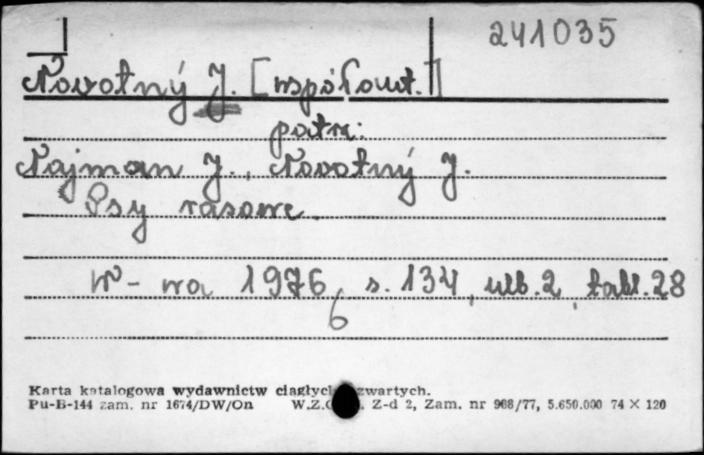 241035
Novotný J. [współaut.]
patrz:
Najman J., Novotný J.
Psy rasowe.
W-wa 1976, s. 134, ulb. 2, tabl. 28
6
Karta katalogowa wydawnictw ciągłych zwartych.
Pu-B-144 zam. nr 1674/DW/On W.Z. Z-d 2, Zam. nr 968/77, 5.650.000 74 X 120